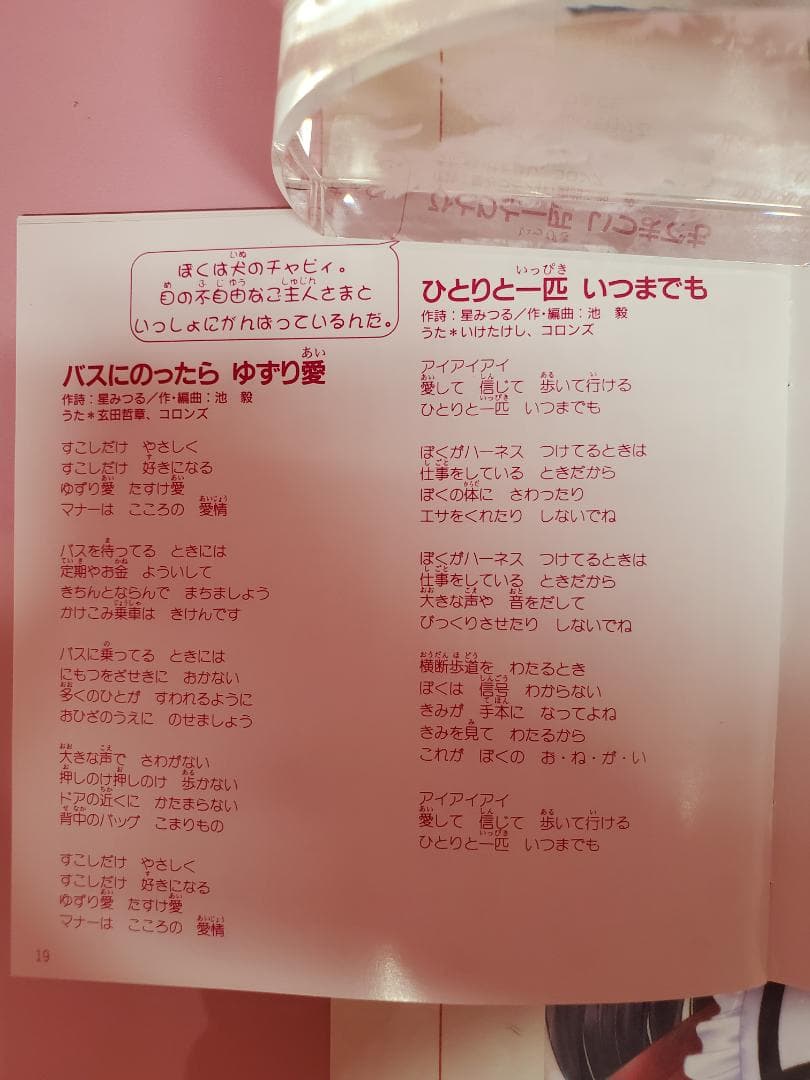 ぼくは犬のチャピィ。
目の不自由なご主人さまと
いっしょにがんばっているんだ。
バスにのったら ゆずり愛
作詩:星みつる/作・編曲:池 毅
うた*玄田哲章、コロンズ
すこしだけ やさしく
すこしだけ 好きになる
ゆずり愛 たすけ愛
マナーは こころの 愛情
バスを待ってる ときには
定期やお金 よういして
きちんとならんで まちましょう
かけこみ乗車は きけんです
バスに乗ってる ときには
にもつをざせきに おかない
多くのひとが すわれるように
おひざのうえに のせましょう
大きな声で さわがない
押しのけ押しのけ 歩かない
ドアの近くに かたまらない
背中のバッグ こまりもの
すこしだけ やさしく
すこしだけ 好きになる
ゆずり愛 たすけ愛
マナーは こころの 愛情
19
ひとりと一匹 いつまでも
作詩:星みつる/作・編曲:池 毅
うた*いけたけし、コロンズ
アイアイアイ
愛して 信じて 歩いて行ける
ひとりと一匹 いつまでも
ぼくがハーネス つけてるときは
仕事をしている ときだから
ぼくの体に さわったり
エサをくれたり しないでね
ぼくがハーネス つけてるときは
仕事をしている ときだから
大きな声や 音をだして
びっくりさせたり しないでね
横断歩道を わたるとき
ぼくは 信号 わからない
きみが 手本に なってよね
きみを見て わたるから
これが ぼくの お・ね・が・い
アイアイアイ
愛して 信じて 歩いて行ける
ひとりと一匹 いつまでも